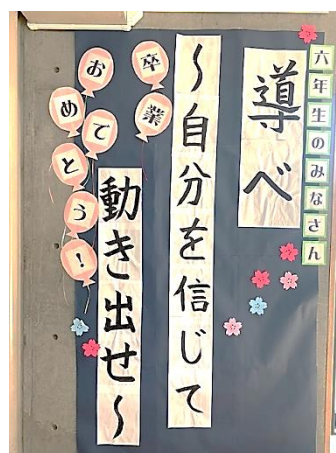 六年生のみなさん
導べ
～自分を信じて
動き出せ～
卒業
おめでとう！